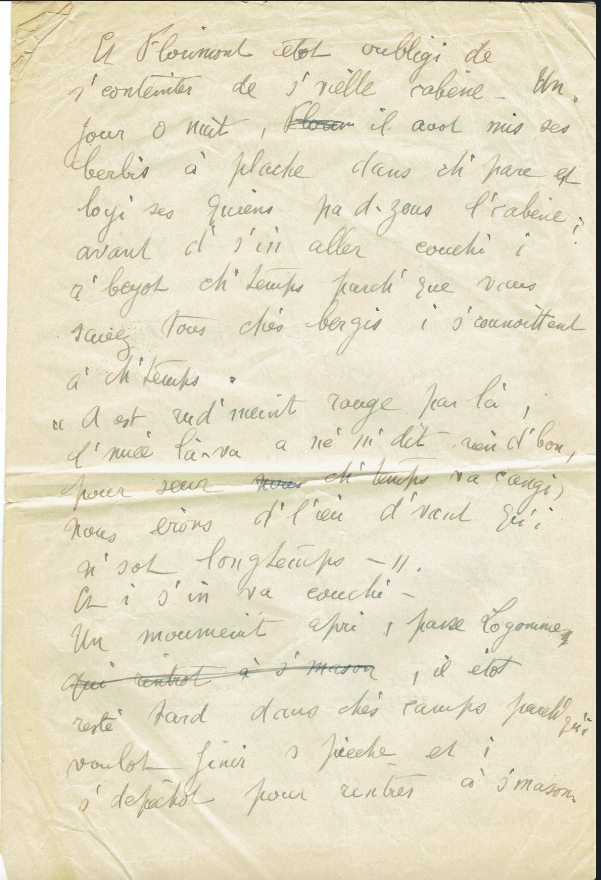 Et Flourimont étot oubligi de
s'conteinter de s'vielle cabène - Un
jour o nuit, Flour il avot mis ses
berbis à plache dans ch'parc et
logi ses quiens pa d-zous l'cabène ;
avant d's'in aller couchi i
r'beyot ch'temps parch'que vous
savez tous chés bergis i s'connoittent
à ch'temps.
" A est rud'meint rouge par là,
l'nuée là-va a né m'dit rien d'bon,
pour seur nous ch'temps va cangi,
nous érons d'l'ieu d'vant qu'i
n'sot longtemps - ".
Et i s'in va couchi -
Un moumeint apri, passe Logomme,
qui rintrot à s'mason, il étot
resté tard dans chés camps parch'qu'i
voulot finir s'pièche et i
s'dépêchot pour rintrer à s'mason.